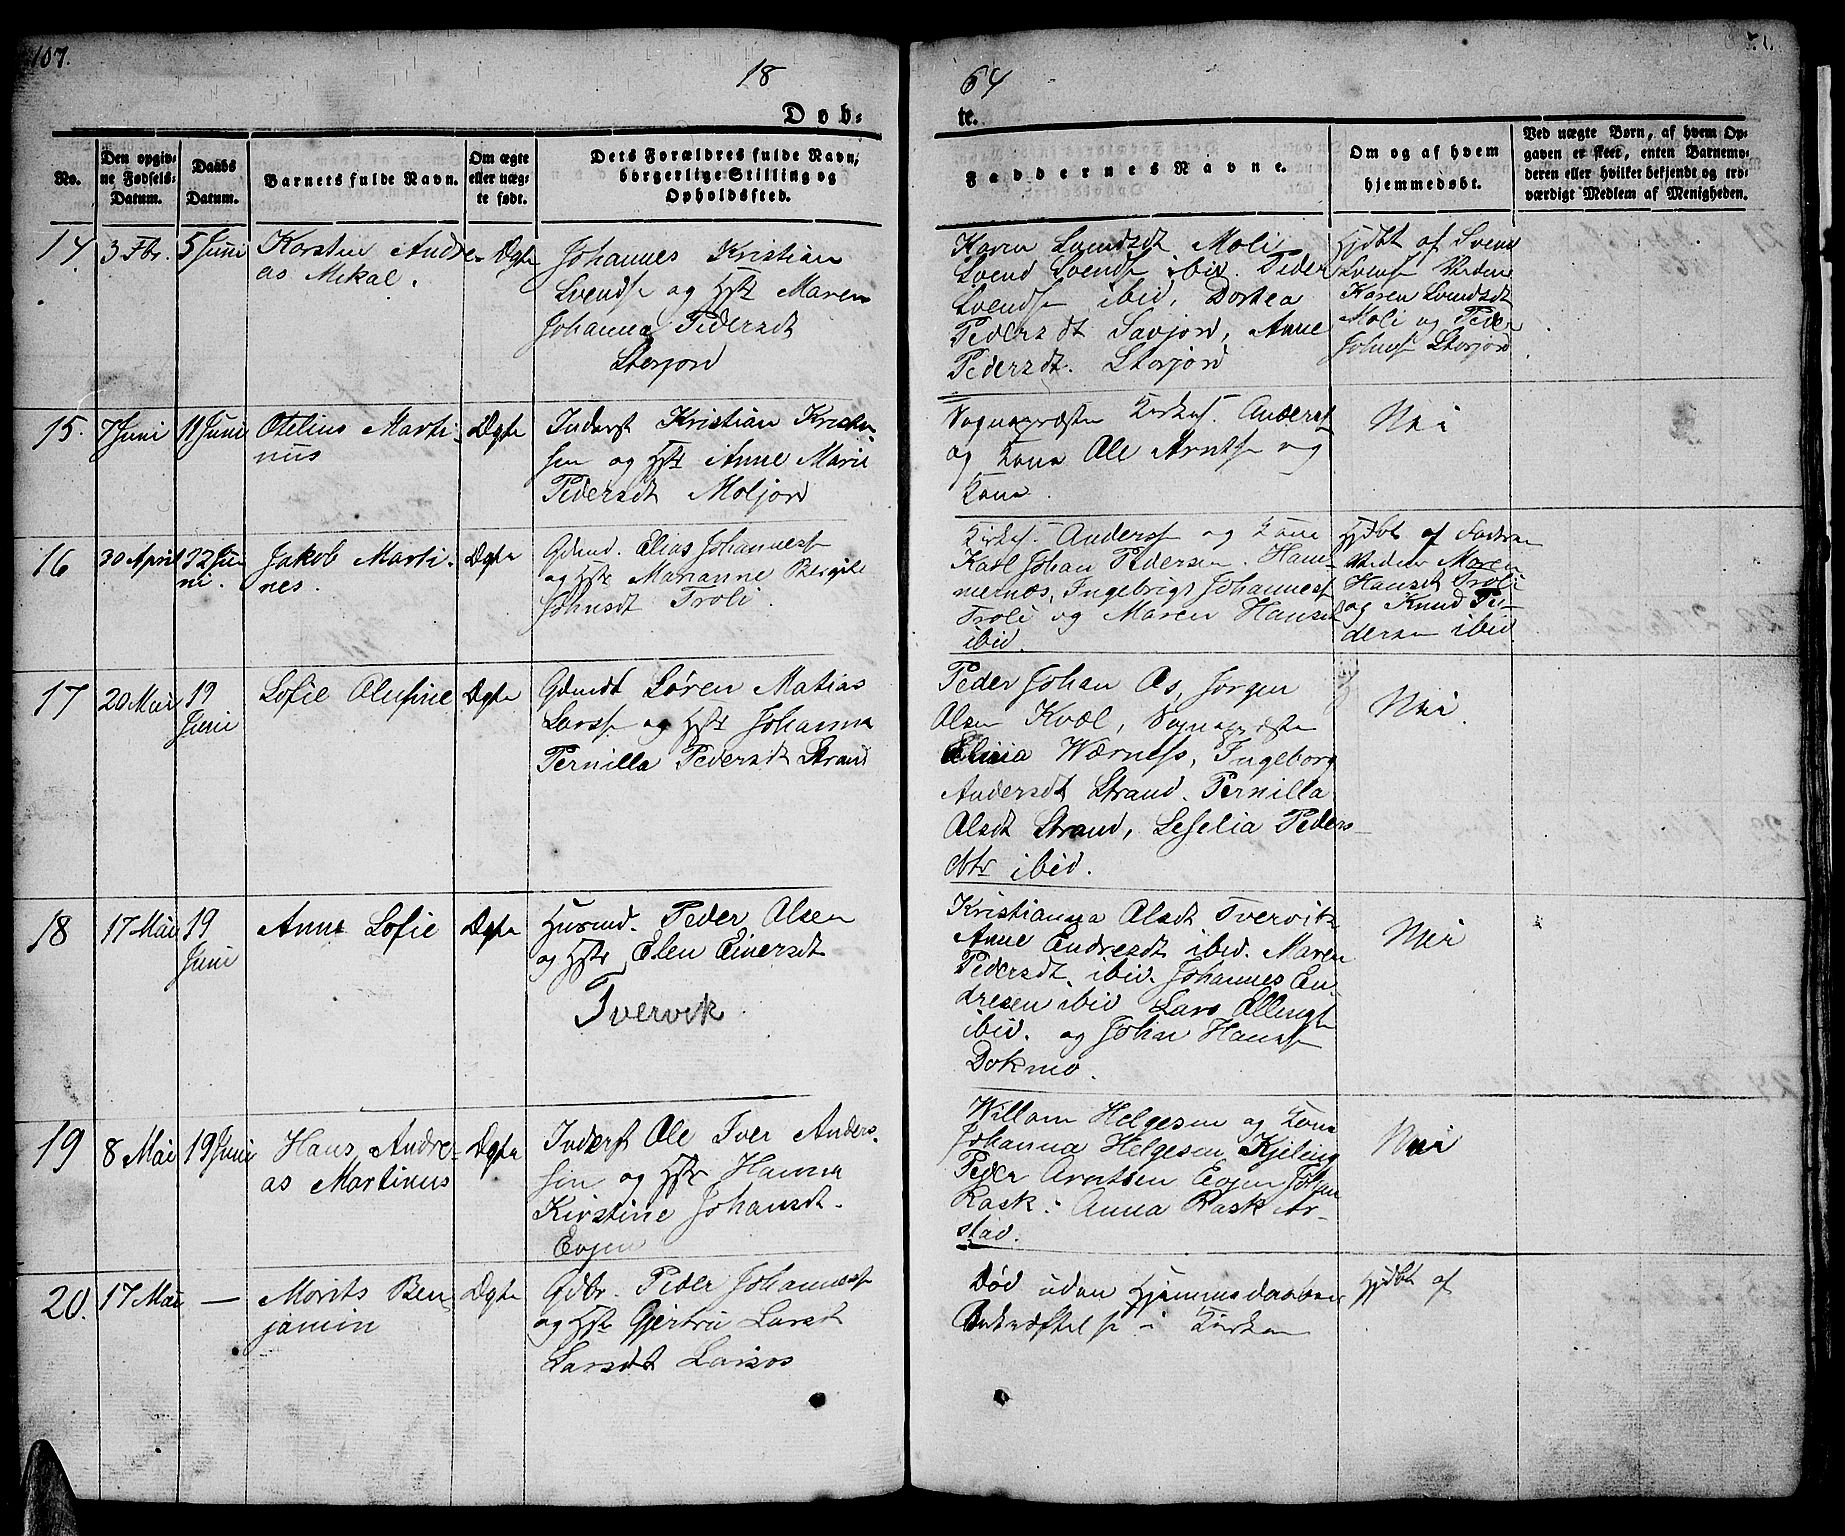 107.
18 64
Døb-
te.
No.
Den opgiv-
ne Fødsels-
Datum.
Daabs
Datum.
Barnets fulde Navn.
Om ægte
eller uæg-
te født.
Dets Forældres fulde Navn,
borgerlige Stilling og
Opholdssted.
Faddernes Navne.
Om og af hvem
hjemmedøbt.
Ved uægte Børn, af hvem Op-
gaven er skeet, enten Barnemo-
deren eller hvilket bekjendt og tro-
værdigt Medlem af Menigheden.
14. 3 Fbr. 5 Juni
Andre-
as Mekal.
Ægte
Johannes Kristian
Svends og Hst Maren
Johanna Pedersdt
Storjord
Karen Svendsdt Moli
Svend Svends ibid. Peder
Svends ibid, Dortea
Pedersdt Savjord, Anne
Pedersdt. Storjord
Hjdbt af Svend
Svends
Karen Svendsdt
Moli og Peder
Johns Storjord
15. 7 Juni 11 Juni
Otelius Marti-
nus
Ægte
Inderst Kristian Kristen-
sen og Hst Anne Marie
Pedersdt Moljord
Kirkes. Anders
og Kone Ole Arnts og
Kone.
Nei
16 30 April 22 Ju-
ni.
Jakob Marti-
nes.
Ægte
Gdmd. Elias Johannes
og Hst Marianne Bergite
Johnsdt Troli.
Kirkes. Anders og Kone
Karl Johan Pedersen. Ham-
mernæs, Ingebrigt Johannes
Troli og Maren Hansd
ibid.
Hjdbt af Fadren
Maren
Hansdt Troli
og Knud Pe-
dersen ibid
17 20 Mai 19
Juni
Sofie Olufine
Ægte
Gdmdt Søren Matias
Lars og Hst Johanna
Pernilla Pedersdt Strand
Peder Johan Os, Jorgen
Olsen Kvæl,
Elisia Wærness, Ingeborg
Andersdt Strand. Pernilla
Olsdt Strand, Seselia Peders-
dtr ibid.
Nei.
18 17 Mai 19
Juni
Anne Sofie
Ægte
Husmd. Peder Olsen
og Hst Elen Einersdt
Tvervik
Kristianna Olsdt Tvervik
Anne Endresdt ibid. Maren
Pedersdt. ibid. Johannes En-
dresen ibid Lars
ibid. og Johan Hans
Dokmo.
Nei
19 8 Mai 19 Juni
Hans Andre-
as Martinus
Ægte
Inderst Ole Iver Anders-
sen og Hst Hanna
Kirstine Johansdt.
Evjen
Willom Helgesen og Kone
Johanna Helgesen Kjeling
Peder Arntsen Evjen Johan
Rask. Anna Rask Ar-
stad.
Nei
20. 17 Mai —
Morits Ben-
jamin
Ægte
Gdbr. Peder Johannes
og Hst Gjertru Larsdt
Larsdt Larsos
Død uden Hjemmedaabens
Bekræftelse i Kirken
Hjdbt af